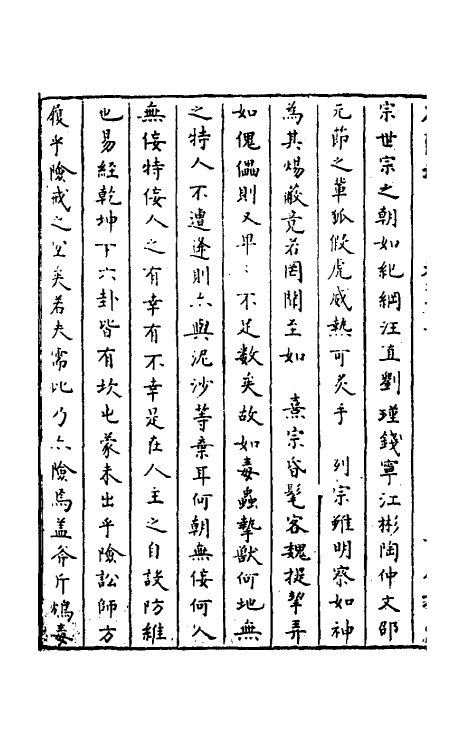 宗世宗之朝如紀綱汪直劉瑾錢寧江彬陶仲文邵
元節之輩狐假虎威熱可炙手　列宗雖明察如神
為其煬蔽竟若罔聞至如　熹宗昏髦客魏提挈弄
如傀儡則又卑卑不足數矣故如毒蟲摯獸何地無
之特人不遭逢則亦與泥沙等棄耳何朝無佞何人
無佞特佞人之有幸有不幸是在人主之自謹防維
也易經乾坤下六卦皆有坎屯蒙未出乎險訟師方
履乎險戒之至矣若夫需比乃亦險焉蓋斧斤鴆毒